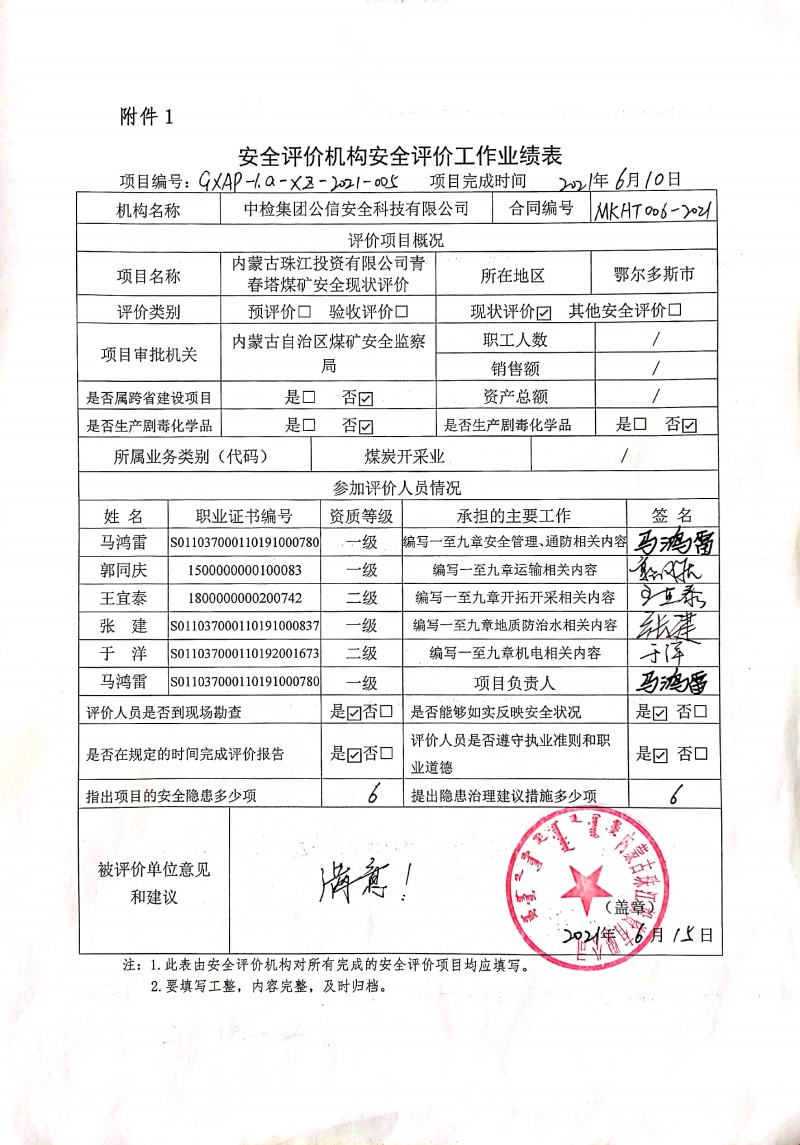 附件1
安全评价机构安全评价工作业绩表
项目编号：GXAP-1.a-XZ-2021-005 项目完成时间 2021年6月10日
机构名称 中检集团公信安全科技有限公司 合同编号 MKHT006-2021
评价项目概况
项目名称 内蒙古珠江投资有限公司青春塔煤矿安全现状评价 所在地区 鄂尔多斯市
评价类别 预评价□ 验收评价□ 现状评价☑ 其他安全评价□
项目审批机关 内蒙古自治区煤矿安全监察局 职工人数 /
销售额 /
是否属跨省建设项目 是□ 否☑ 资产总额 /
是否生产剧毒化学品 是□ 否☑ 是否生产剧毒化学品 是□ 否☑
所属业务类别（代码） 煤炭开采业 /
参加评价人员情况
姓 名 职业证书编号 资质等级 承担的主要工作 签 名
马鸿雷 S011037000110191000780 一级 编写一至九章安全管理、通防相关内容 马鸿雷
郭同庆 1500000000100083 一级 编写一至九章运输相关内容
王宜泰 1800000000200742 二级 编写一至九章开拓开采相关内容 王宜泰
张 建 S011037000110191000837 一级 编写一至九章地质防治水相关内容 张建
于 洋 S011037000110192001673 二级 编写一至九章机电相关内容 于洋
马鸿雷 S011037000110191000780 一级 项目负责人 马鸿雷
评价人员是否到现场勘查 是☑否□ 是否能够如实反映安全状况 是☑ 否□
是否在规定的时间完成评价报告 是☑否□ 评价人员是否遵守执业准则和职业道德 是☑ 否□
指出项目的安全隐患多少项 6 提出隐患治理建议措施多少项 6
被评价单位意见和建议 满意！
内蒙古珠江投资有限公司
（盖章）
2021年6月15日
注：1.此表由安全评价机构对所有完成的安全评价项目均应填写。
2.要填写工整，内容完整，及时归档。